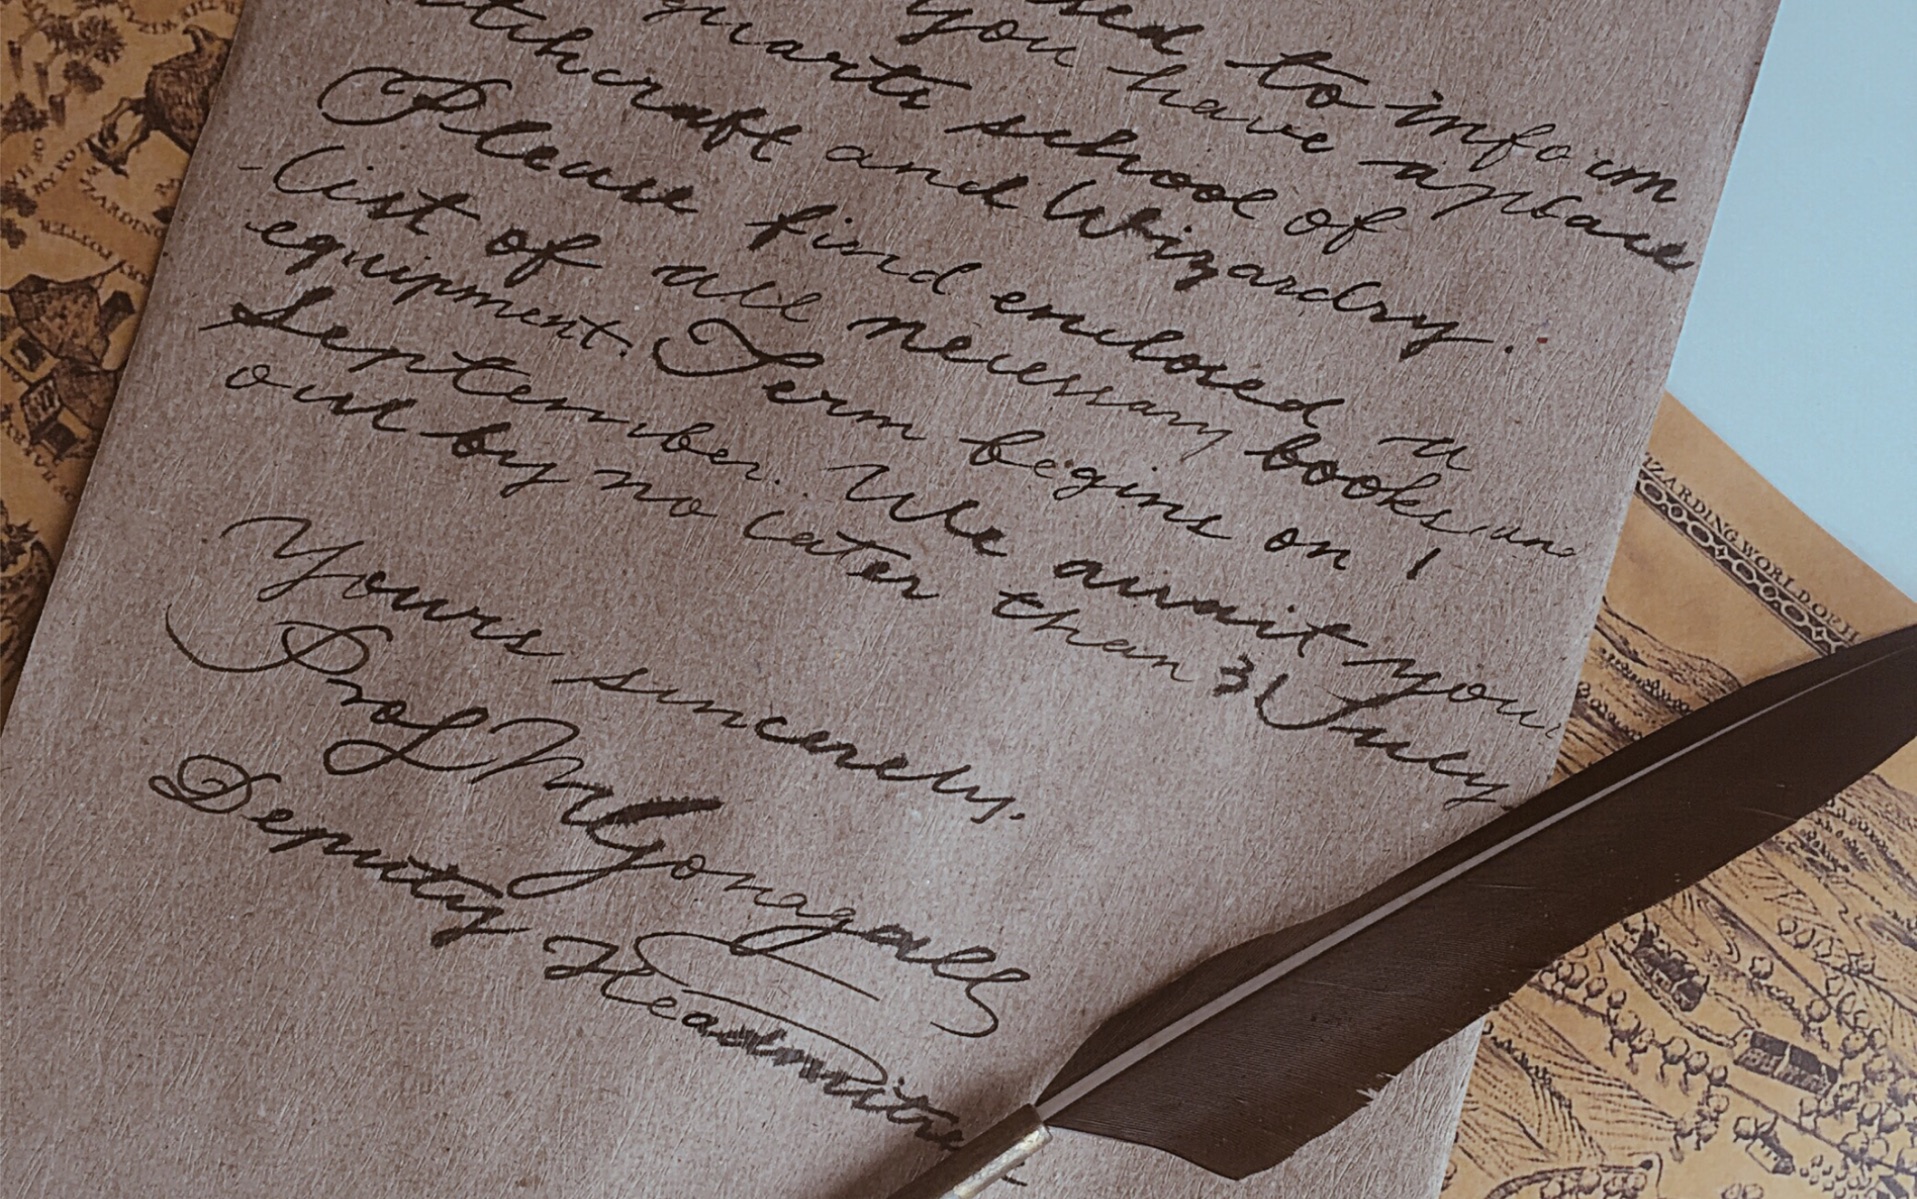 to inform
you have a place
school of
and Wizardry.
Please find enclosed a
list of all necessary books and
equipment. Term begins on 1
September. We await your
owl by no later than 31 July
Yours sincerely,
Prof McGonagall
Deputy
WIZARDING WORLD OF H